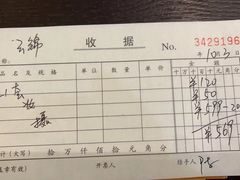 云锦 收据 No. 3429196
10月3日
品名及规格 单位 数量 单价 金额
十万千百十元角分
¥120
一套 ¥50
妆 ¥599-20
摄
¥569
合计(大写) 拾 万 仟 佰 拾 元 角 分
(盖章有效) 开票人 经手人